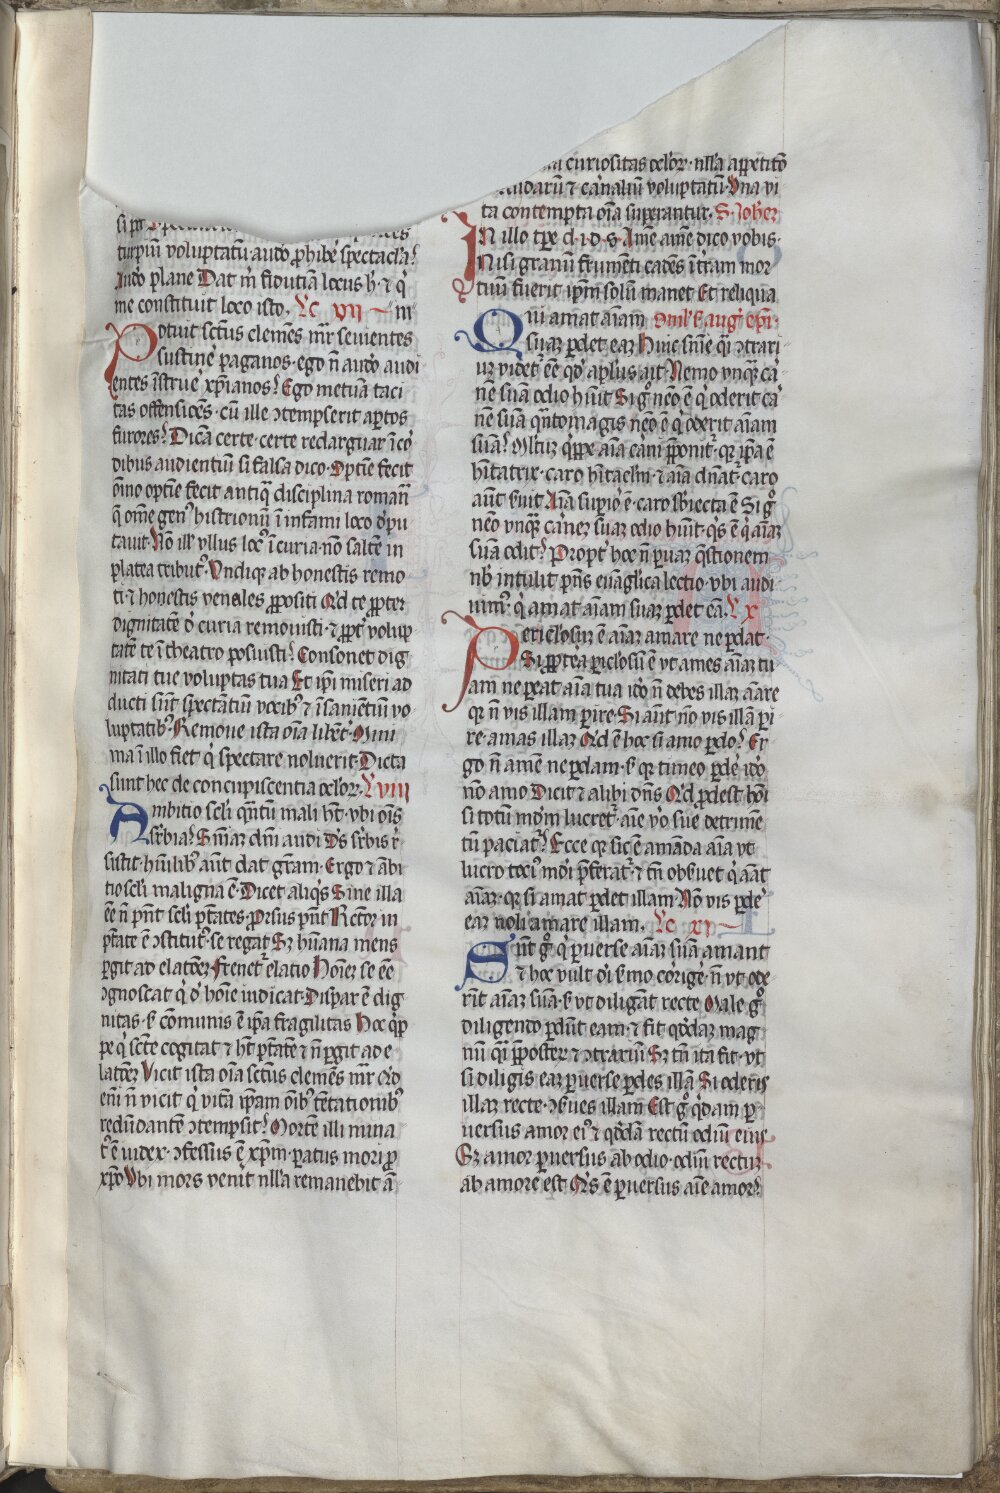 turpiū voluptatū audō ꝓhibē spectacła?
Audō plane Dat m̄ fidutiā locus h̄ · ⁊ q̄
me constituit loco isto. Lc̄ vij m
Potuit sctūs clemēs mr̄ seuientes
sustinē paganos · ego n̄ audō audi
entes īstruē xp̄ianos? Ego metuā taci
tas offensiōēs · cū ille ↄtempserit aꝑtos
furores? Dicā certe · certe redarguar ī co
dibus audientiū si falsa dico · Optīe fecit
oīno optīe fecit antiq̄ disciplina romanū
q̄ om̄e genꝰ histrionū ī infami loco dep̄u
tauit · Nō illꝰ vllus locꝰ ī curia · nō saltē in
platea tribuit̄ · Undiqꝫ ab honestis remo
ti · ⁊ honestis venales ꝓpositi Qͥd te ꝓpter
dignitatē ō curia remouisti · ⁊ ꝓpt̄ volup
tatē te ī theatro posuisti? Consonet dig
nitati tue voluptas tua Et ip̄i miseri ad
ducti sūt spectātiū vocibꝰ ⁊ īsaniētiū vo
luptatibꝰ · Remoue ista oīa libēt̄ · Mini
ma ī illo fiet q̄ spectare noluerit · Dicta
sunt hec de concupiscentia oclor̄ · L̄ viii
Ambitio scłi qn̄tū mali hȝ · vbi oīs
suꝑbia? Sūmaꝫ dn̄i audi Ds̄ suꝑbis r̄
sistit · hūilibꝰ aūt dat gr̄am · Ergo ⁊ ābi
tio scłi maligna ē · Dicet aliqͥs Sine illa
ēē n̄ pn̄t scłi ptātes · ꝓrsus pn̄t Rectōr in
ptāte ē ↄstitutꝰ · se regat Sꝫ hūana mens
ꝑgit ad elatōeꝫ Frenet̄ elatio Hoīeꝫ se ēē
ↄgnoscat q̄ ō hoīe iudicat · Dispar ē dig
nitas · sꝫ cōmunis ē ip̄a fragilitas Hoc q̄ꝓ
pe q̄ sctē cogitat ⁊ hȝ ptātē ⁊ n̄ ꝑgit ad e
latōeꝫ Vicit ista oīa sctūs clemēs mr̄ Qͥd
eni n̄ vicit q̄ vitā ip̄am oībꝰ tētationibꝰ
redūdantē ↄtempsit? Mortē illi mina
tꝰ ē iudex · ↄfessus ē xp̄m · paratus mori ꝓ
xp̄o Ubi mors venit nłla remanebit ā
curiositas oclor̄ · nłla appetitō
mūdarū ⁊ carnaliū voluptatū · Una vi
ta contempta oīa suꝑantur · S. Joħeꝫ
IN illo tp̄e d · i · d · s · Amē amē dico vobis ·
Nisi granū frumēti cadēs ī trām mor
tuū fuerit ip̄m solū manet Et reliqua
Qui amat aīam Omīł S auḡ epī ·
suaꝫ ꝑdet eaꝫ Huic sūīe q̄i ↄtrari
uꝫ videt̄ ēē qd̄ aplus ait · Nemo vnqꝫ cā
nē suā odio hūit Sigͦ neō ē q̄ oderit cā
nē suā qn̄tomagis neō ē q̄ oderit aīam
suā? Mltuꝫ q̄ꝓe aīa carni p̄ponit̄ · qꝫ ip̄a ē
hītatrix · caro hītacłm · ⁊ aīa dn̄at̄ · caro
aūt ẜuit Aīa supiō ē · caro sbiecta ē Sigͦ
neō vnqꝫ carneꝫ suaꝫ odio hūit · qͥs ē q̄ aīaꝫ
suā odit? Propt̄ hoc n̄ ꝑuaꝫ q̄stionem
nb̄ intulit pn̄s euāglica lectio · vbi audi
uimꝰ · q̄ amat aīam suaꝫ ꝑdet eā · L̄ x
Pericłosuꝫ ē aīaꝫ amare ne ꝑdat ·
Si ꝓpt̄ea ꝑicłosū ē vt ames aīaꝫ tu
am ne ꝑeat aīa tua idō n̄ debes illaꝫ amare
qꝫ n̄ vis illam ꝑire · Si aūt nō vis illā ꝑi
re · amas illaꝫ Qͥd ē hoc si amo ꝑdo? Er
go n̄ amē ne ꝑdam · sꝫ qꝫ timeo ꝑdē idō
nō amo Dicit ⁊ alibi dn̄s Qͥd ꝓdest hoī
si totū mdm̄ lucret̄ · aīe v̄o sue detrimē
tū paciat̄? Ecce qꝫ sic ē amāda aīa vt
lucro tociꝰ mdī p̄ferat̄ · ⁊ tn̄ obẜuet q̄ amāt
aīaꝫ · qꝫ si amat ꝑdet illam · Nō vis ꝑdē
eaꝫ noli amare illam · Lc̄ xi
Sūt gͦ q̄ ꝑuerse aīaꝫ suā amant
⁊ hoc vult dī ẜmo corigē · n̄ vt ode
rīt aīaꝫ suā · sꝫ vt diligāt recte Male gͦ
diligendo ꝑdūt eam · ⁊ fit qd̄daꝫ mag
nū q̄i p̄posterū ⁊ ↄtrariū Sꝫ tn̄ ita fit · vt
si diligis eaꝫ ꝑuerse ꝑdes illā Si oderis
illaꝫ recte · ↄẜues illam Est gͦ qͥdam ꝑ
uersus amor eiꝰ ⁊ qd̄dā rectū odiū eius
Sꝫ amor ꝑuersus ab odio · odiū rectuꝫ
ab amore est Qͥs ē ꝑuersus aīe amor?